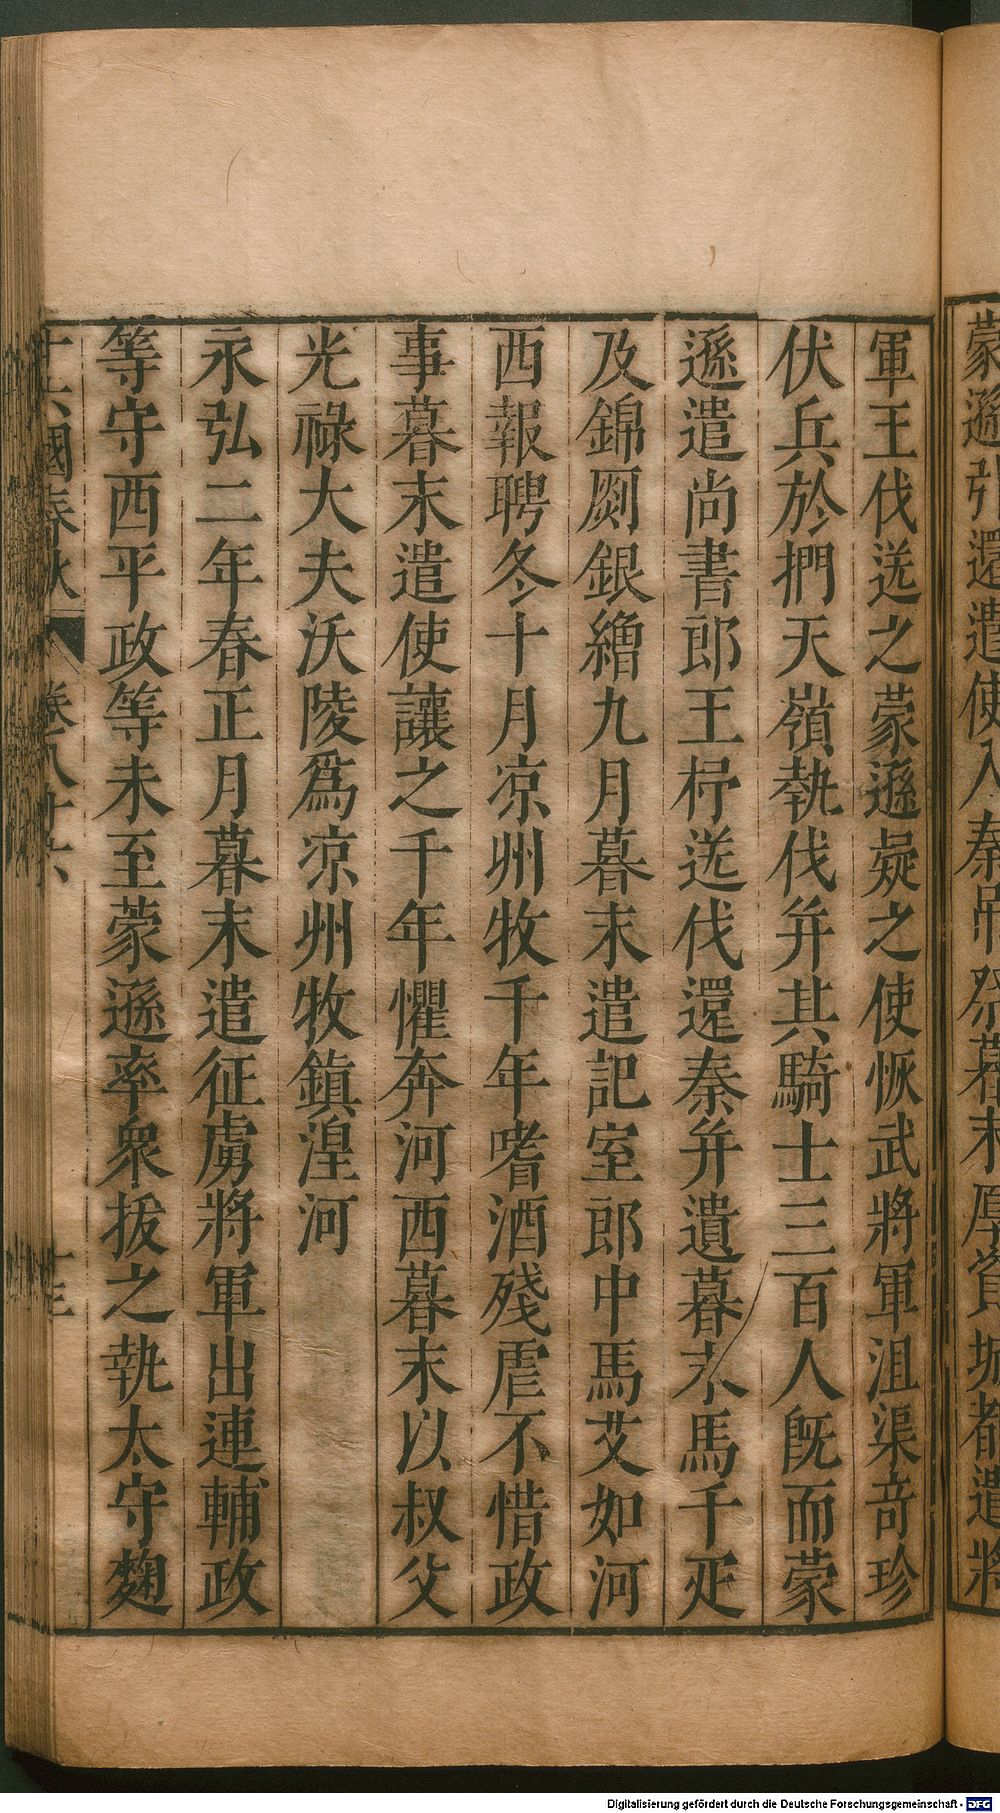 蒙遜引還遣使入秦弔祭暮末厚資城都遣將
軍王伐送之蒙遜疑之使恢武將軍沮渠奇珍
伏兵於捫天嶺執伐并其騎士三百人旣而蒙
遜遣尚書郎王杼送伐還秦并遺暮末馬千疋
及錦罽銀繒九月暮末遣記室郎中馬艾如河
西報聘冬十月涼州牧千年嗜酒殘虐不惜政
事暮末遣使讓之千年懼奔河西暮末以叔父
光祿大夫沃陵爲涼州牧鎮湟河
永弘二年春正月暮末遣征虜將軍出連輔政
等守西平政等未至蒙遜率衆拔之執太守麴
十六國春秋 卷八十六 十三
Digitalisierung gefördert durch die Deutsche Forschungsgemeinschaft - DFG